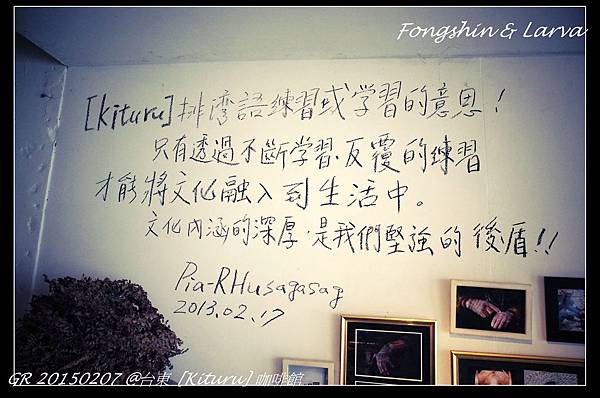 Fongshin & Larva
[kituru] 排湾語練習或学習的意思!
只有透過不斷学習、反覆的練習
才能將文化融入到生活中。
文化内涵的深厚,是我們堅強的後盾!!
Pia-RHusagasag
2013.02.17
GR 20150207 @台東 [Kituru] 咖啡館